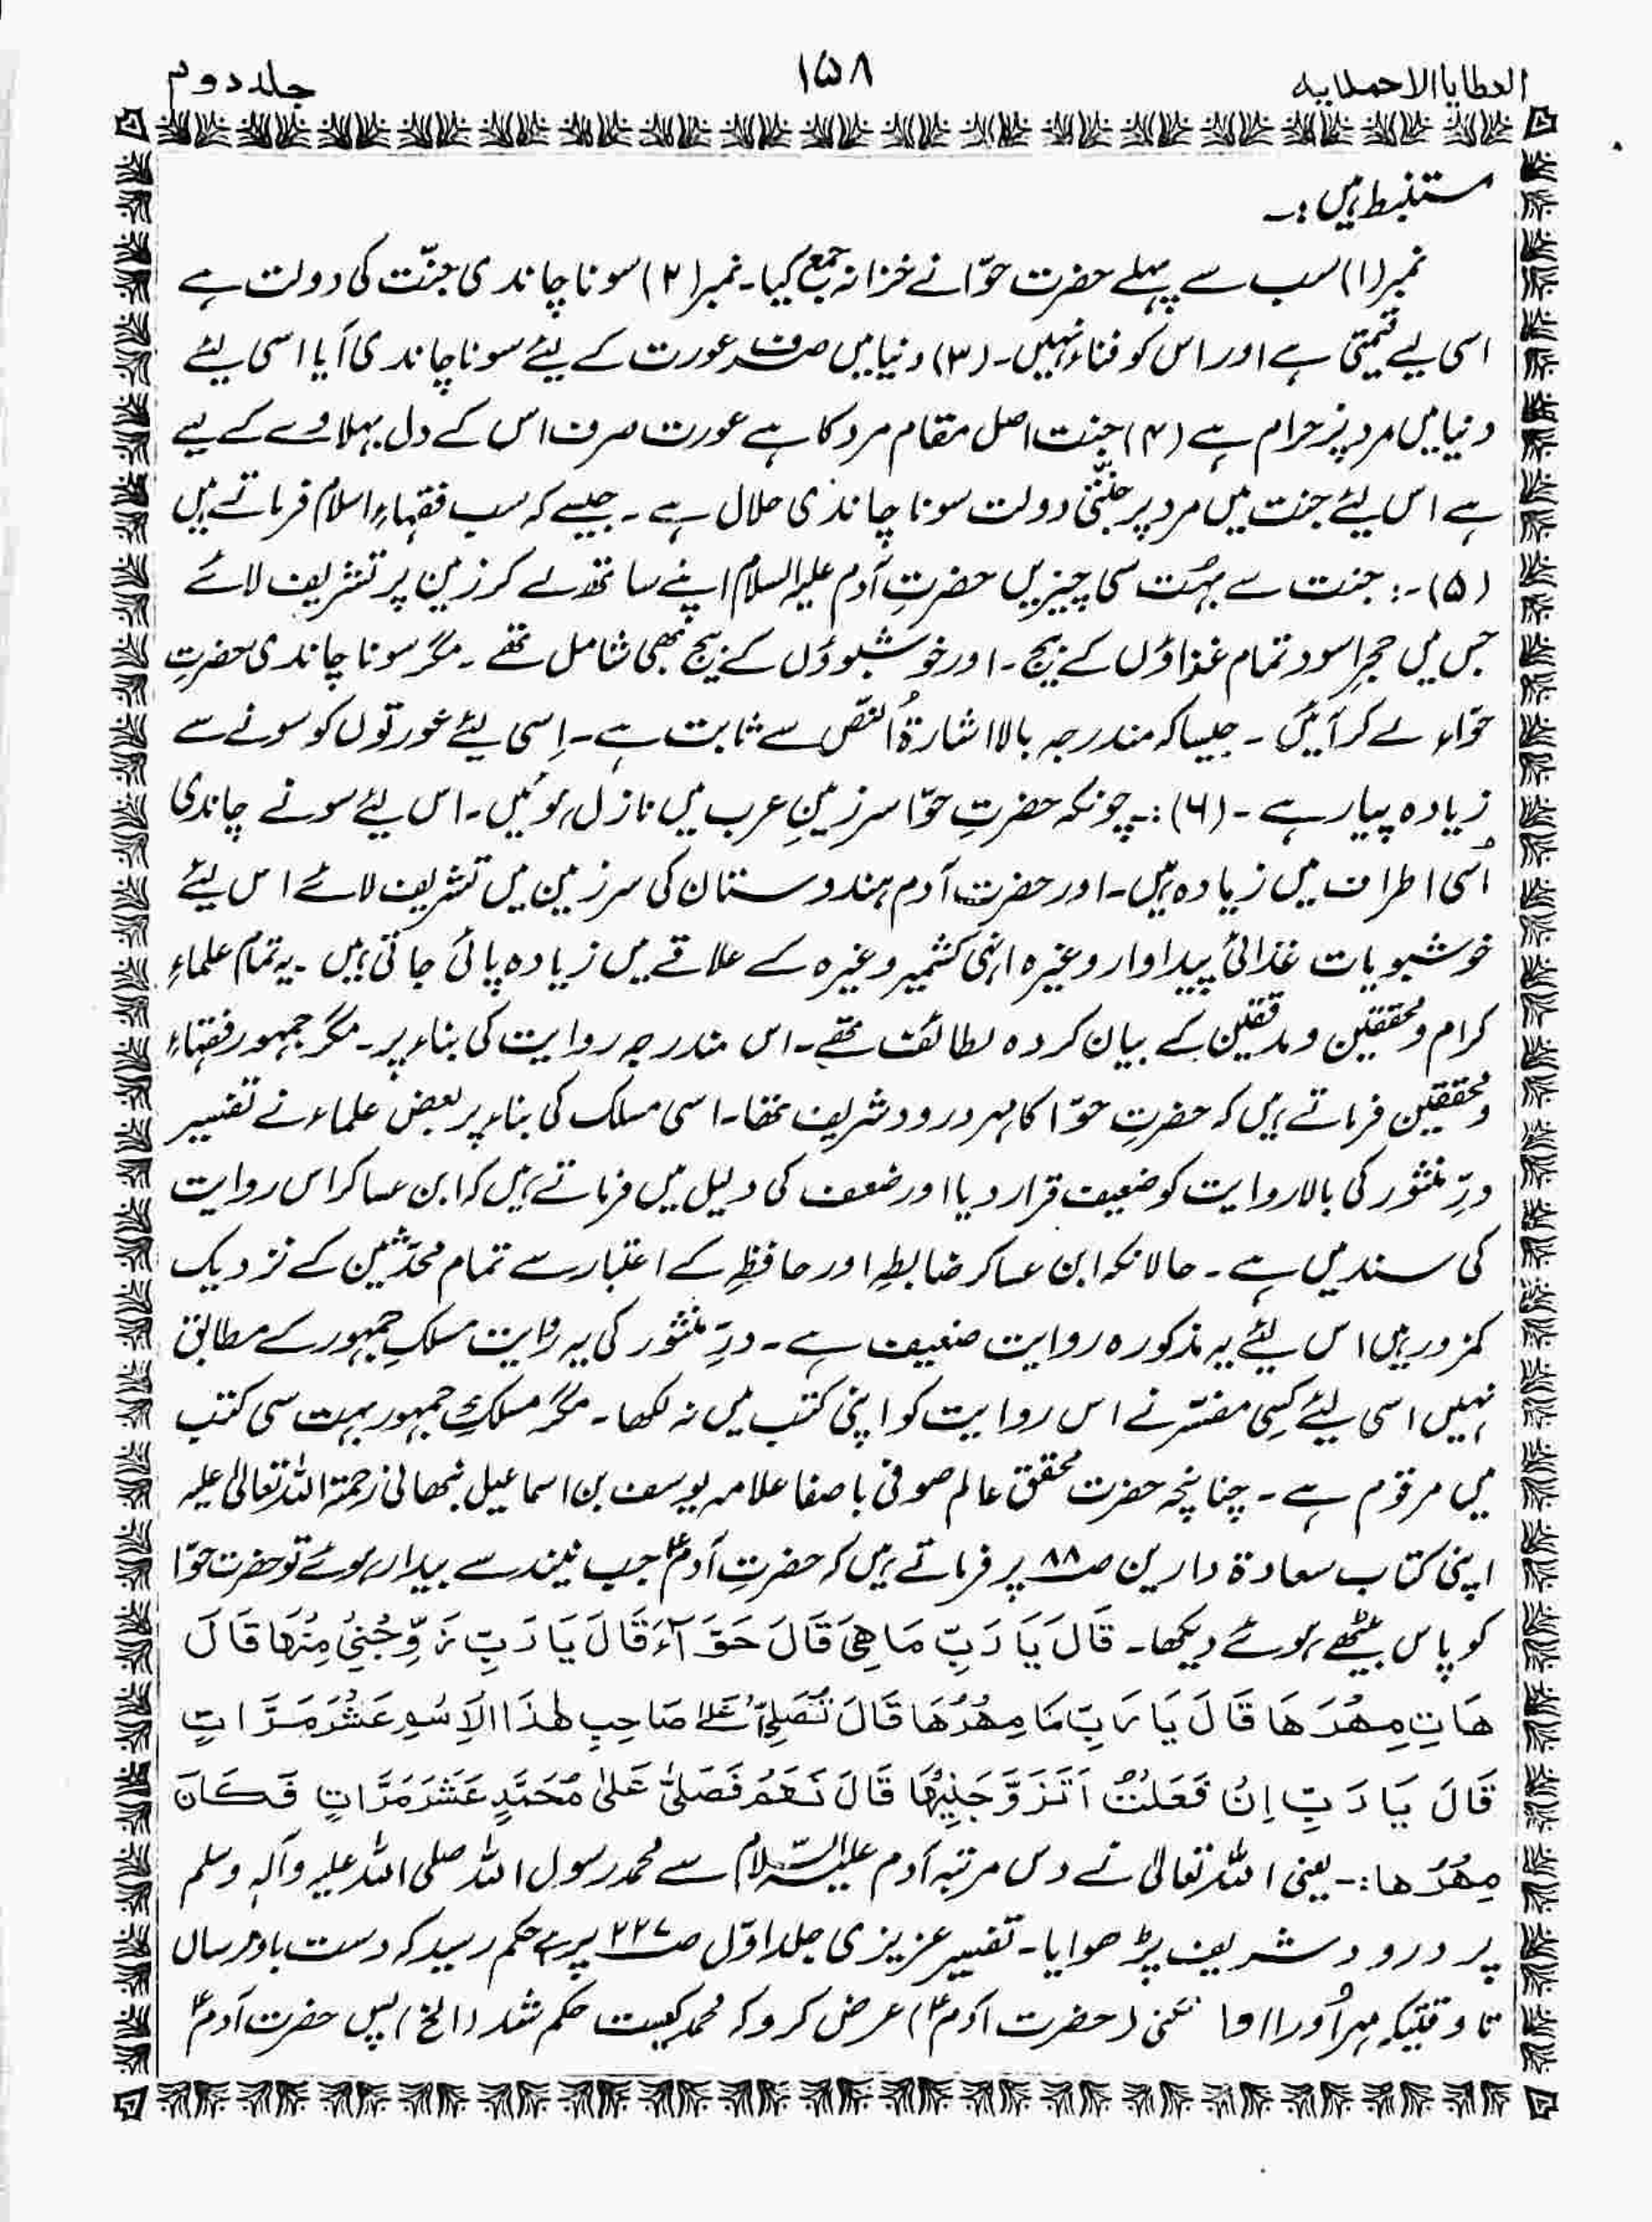 العطایا الاحمدیہ ۱۵۸ جلد دوم
مستنبط ہیں :۔
نمبر (۱) سب سے پہلے حضرت حوّا نے خزانہ جمع کیا۔ نمبر (۲) سونا چاندی جنّت کی دولت ہے
اسی لیے قیمتی ہے اور اس کو فناء نہیں۔ (۳) دنیا میں صرف عورت کے لیئے سونا چاندی آیا اسی لیئے
دنیا میں مرد پر حرام ہے (۴) جنت اصل مقام مرد کا ہے عورت صرف اس کے دل بہلاوے کے لیے
ہے اس لیئے جنت میں مرد پر جنّتی دولت سونا چاندی حلال ہے ۔ جیسے کہ سب فقہاءِ اسلام فرماتے ہیں
(۵) :۔ جنت سے بہُت سی چیزیں حضرتِ آدم علیہ السلام اپنے ساتھ لے کر زمین پر تشریف لائے
جس میں حجرِ اسود تمام غذاؤں کے بیج ۔ اور خوشبوؤں کے بیج بھی شامل تھے ۔ مگر سونا چاندی حضرتِ
حوّاء لے کر آئیں ۔ جیسا کہ مندرجہ بالا اشارۃُ النّص سے ثابت ہے ۔ اِسی لیئے عورتوں کو سونے سے
زیادہ پیار ہے ۔ (۶) :۔ چونکہ حضرتِ حوّا سرزمینِ عرب میں نازل ہوئیں ۔ اس لیئے سونے چاندی
اُسی اطراف میں زیادہ ہیں ۔ اور حضرت آدم ہندوستان کی سرزمین میں تشریف لائے اس لیئے
خوشبویات غذائی پیداوار وغیرہ انہی کشمیر وغیرہ کے علاقے میں زیادہ پائی جاتی ہیں ۔ یہ تمام علماءِ
کرام و محققین و مدققین کے بیان کردہ لطائف تھے ۔ اس مندرجہ روایت کی بناء پر ۔ مگر جمہور فقہاءِ
و محققین فرماتے ہیں کہ حضرتِ حوّا کا مہر درود شریف تھا۔ اسی مسلک کی بناء پر بعض علماء نے تفسیر
درِّ منثور کی بالا روایت کو ضعیف قرار دیا اور ضعف کی دلیل میں فرماتے ہیں کہ ابن عساکر اس روایت
کی سند میں ہے ۔ حالانکہ ابن عساکر ضابطہ اور حافظہ کے اعتبار سے تمام محدّثین کے نزدیک
کمزور ہیں اس لیئے یہ مذکورہ روایت ضعیف ہے ۔ درِّ منثور کی یہ روایت مسلکِ جمہور کے مطابق
نہیں اسی لیئے کسِی مفسّر نے اس روایت کو اپنی کتب میں نہ لکھا ۔ مگر مسلکِ جمہور بہت سی کتب
میں مرقوم ہے ۔ چنانچہ حضرت محقق عالم صوفی باصفا علامہ یوسف بن اسماعیل نبھانی رحمتہ اللہ تعالیٰ علیہ
اپنی کتاب سعادۃ دارین صـ۸۸ پر فرماتے ہیں کہ حضرتِ آدمؑ جب نیند سے بیدار ہوئے تو حضرت حوّا
کو پاس بیٹھے ہوئے دیکھا ۔ قَالَ یَا رَبِّ مَا هِیَ قَالَ حَوَّآءَ قَالَ یَا رَبِّ زَوِّجْنِیْ مِنْهَا قَالَ
هَاتِ مِهْرَهَا قَالَ یَا رَبِّ مَا مِهْرُهَا قَالَ تُصَلِّیْ عَلیٰ صَاحِبِ هٰذَا الْاِسْمِ عَشْرَ مَرَّاتٍ
قَالَ یَا رَبِّ اِنْ فَعَلْتُ اَتَزَوَّجَنِیْهَا قَالَ نَعَمْ فَصَلّٰی عَلٰی مُحَمَّدٍ عَشَرَ مَرَّاتٍ فَكَانَ
مِهْرُها :۔ یعنی اللہ تعالیٰ نے دس مرتبہ آدم علیہ السّلام سے محمد رسول اللہ صلی اللہ علیہ وآلہٖ وسلم
پر درود شریف پڑھوایا ۔ تفسیر عزیزی جلد اوّل صـ۲۲۷ پر ہے حکم رسید کہ دست باو مرسال
تا وقتیکہ مہر اُورا ادا نکنی (حضرت آدمؑ) عرض کرد کہ محمد کیست حکم شد (الخ) پس حضرت آدمؑ